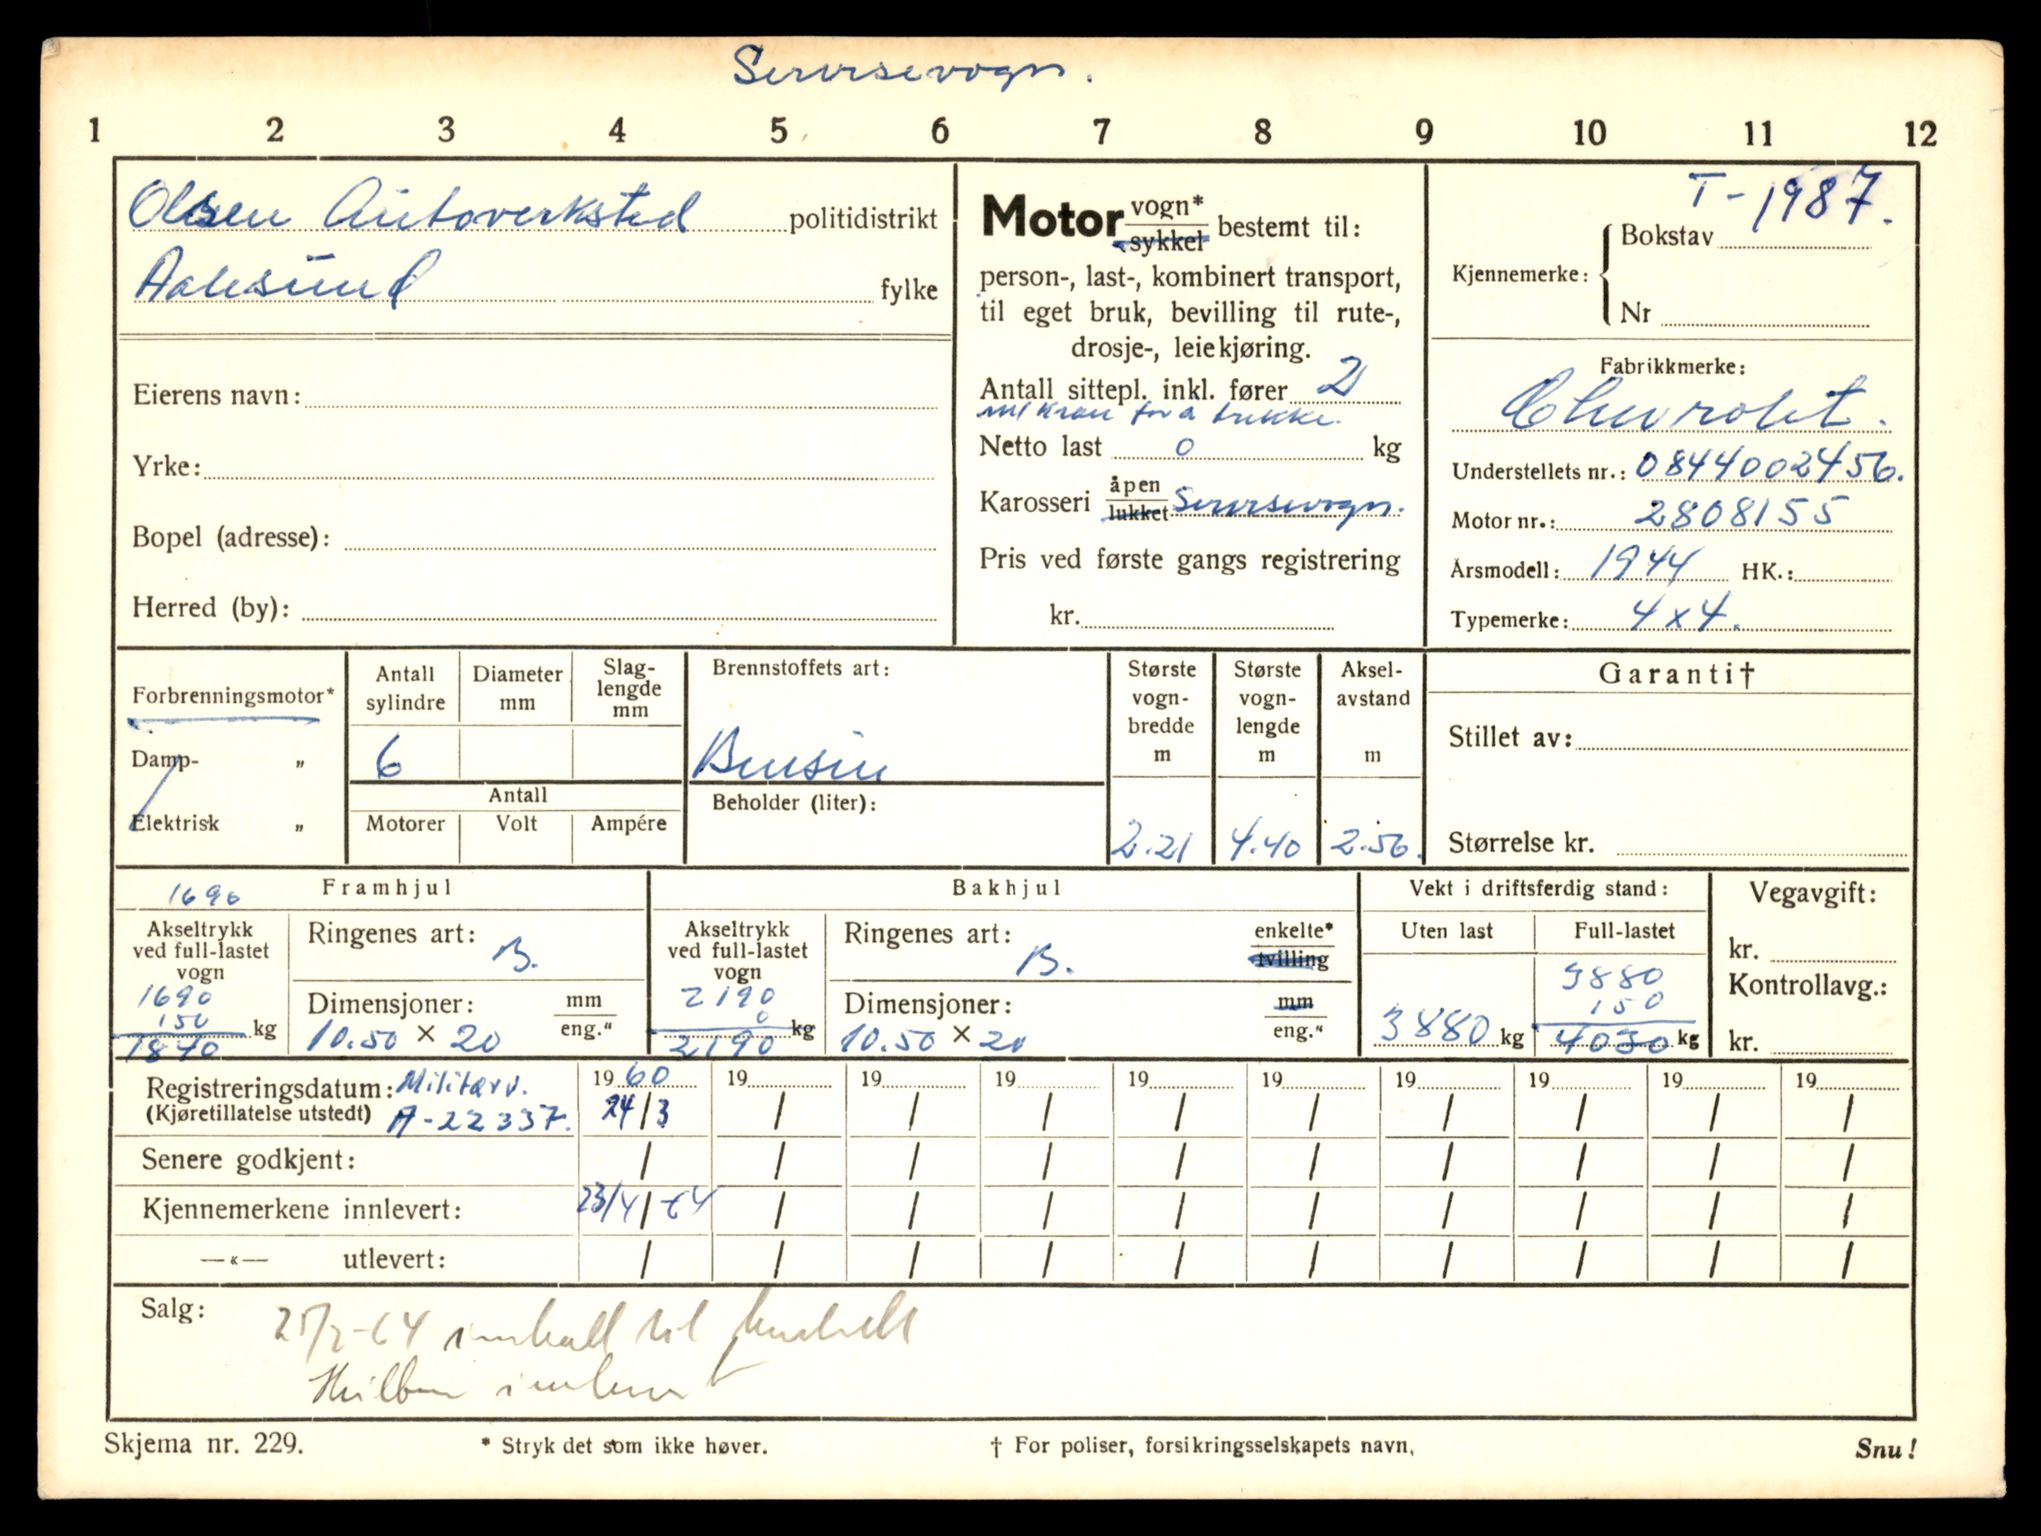 Servisevogn.
1 2 3 4 5 6 7 8 9 10 11 12
Olsen Autoverksted politidistrikt
Aalesund fylke
Eierens navn:
Yrke:
Bopel (adresse):
Herred (by):
Motor vogn* sykkel bestemt til:
person-, last-, kombinert transport,
til eget bruk, bevilling til rute-,
drosje-, leiekjøring.
Antall sittepl. inkl. fører 2
m/ kran for å trekke.
Netto last 0 kg
Karosseri åpen lukket Servisevogn.
Pris ved første gangs registrering
kr.
T-1987.
Kjennemerke: Bokstav
Nr
Fabrikkmerke:
Chevrolet.
Understellets nr.: 0844002456.
Motor nr.: 2808155
Årsmodell: 1944 HK.:
Typemerke: 4x4.
Forbrenningsmotor*
Damp- „
Elektrisk „
Antall sylindre
Diameter mm
Slag-
lengde
mm
6
Antall
Motorer Volt Ampére
Brennstoffets art:
Bensin
Beholder (liter):
Største
vogn-
bredde
m
2.21
Største
vogn-
lengde
m
4.40
Aksel-
avstand
m
2.56.
Garanti†
Stillet av:
Størrelse kr.
1690 Framhjul
Akseltrykk
ved full-lastet
vogn
1690
150 kg
1840
Ringenes art: B.
Dimensjoner: mm
10.50 × 20 eng."
Bakhjul
Akseltrykk
ved full-lastet
vogn
2190
0 kg
2190
Ringenes art: B. enkelte* tvilling
Dimensjoner: mm
10.50 × 20 eng."
Vekt i driftsferdig stand:
Uten last Full-lastet
3880 kg
3880
150
4030 kg
Vegavgift:
kr.
Kontrollavg.:
kr.
Registreringsdatum: Militærv. 1960 19 19 19 19 19 19 19 19 19
(Kjøretillatelse utstedt) A-22337. 24/3 / / / / / / / / /
Senere godkjent: / / / / / / / / / /
Kjennemerkene innlevert: 23/4/-64 / / / / / / / / /
—«— utlevert: / / / / / / / / / /
Salg: innkall til
Skjema nr. 229. * Stryk det som ikke høver. † For poliser, forsikringsselskapets navn. Snu!